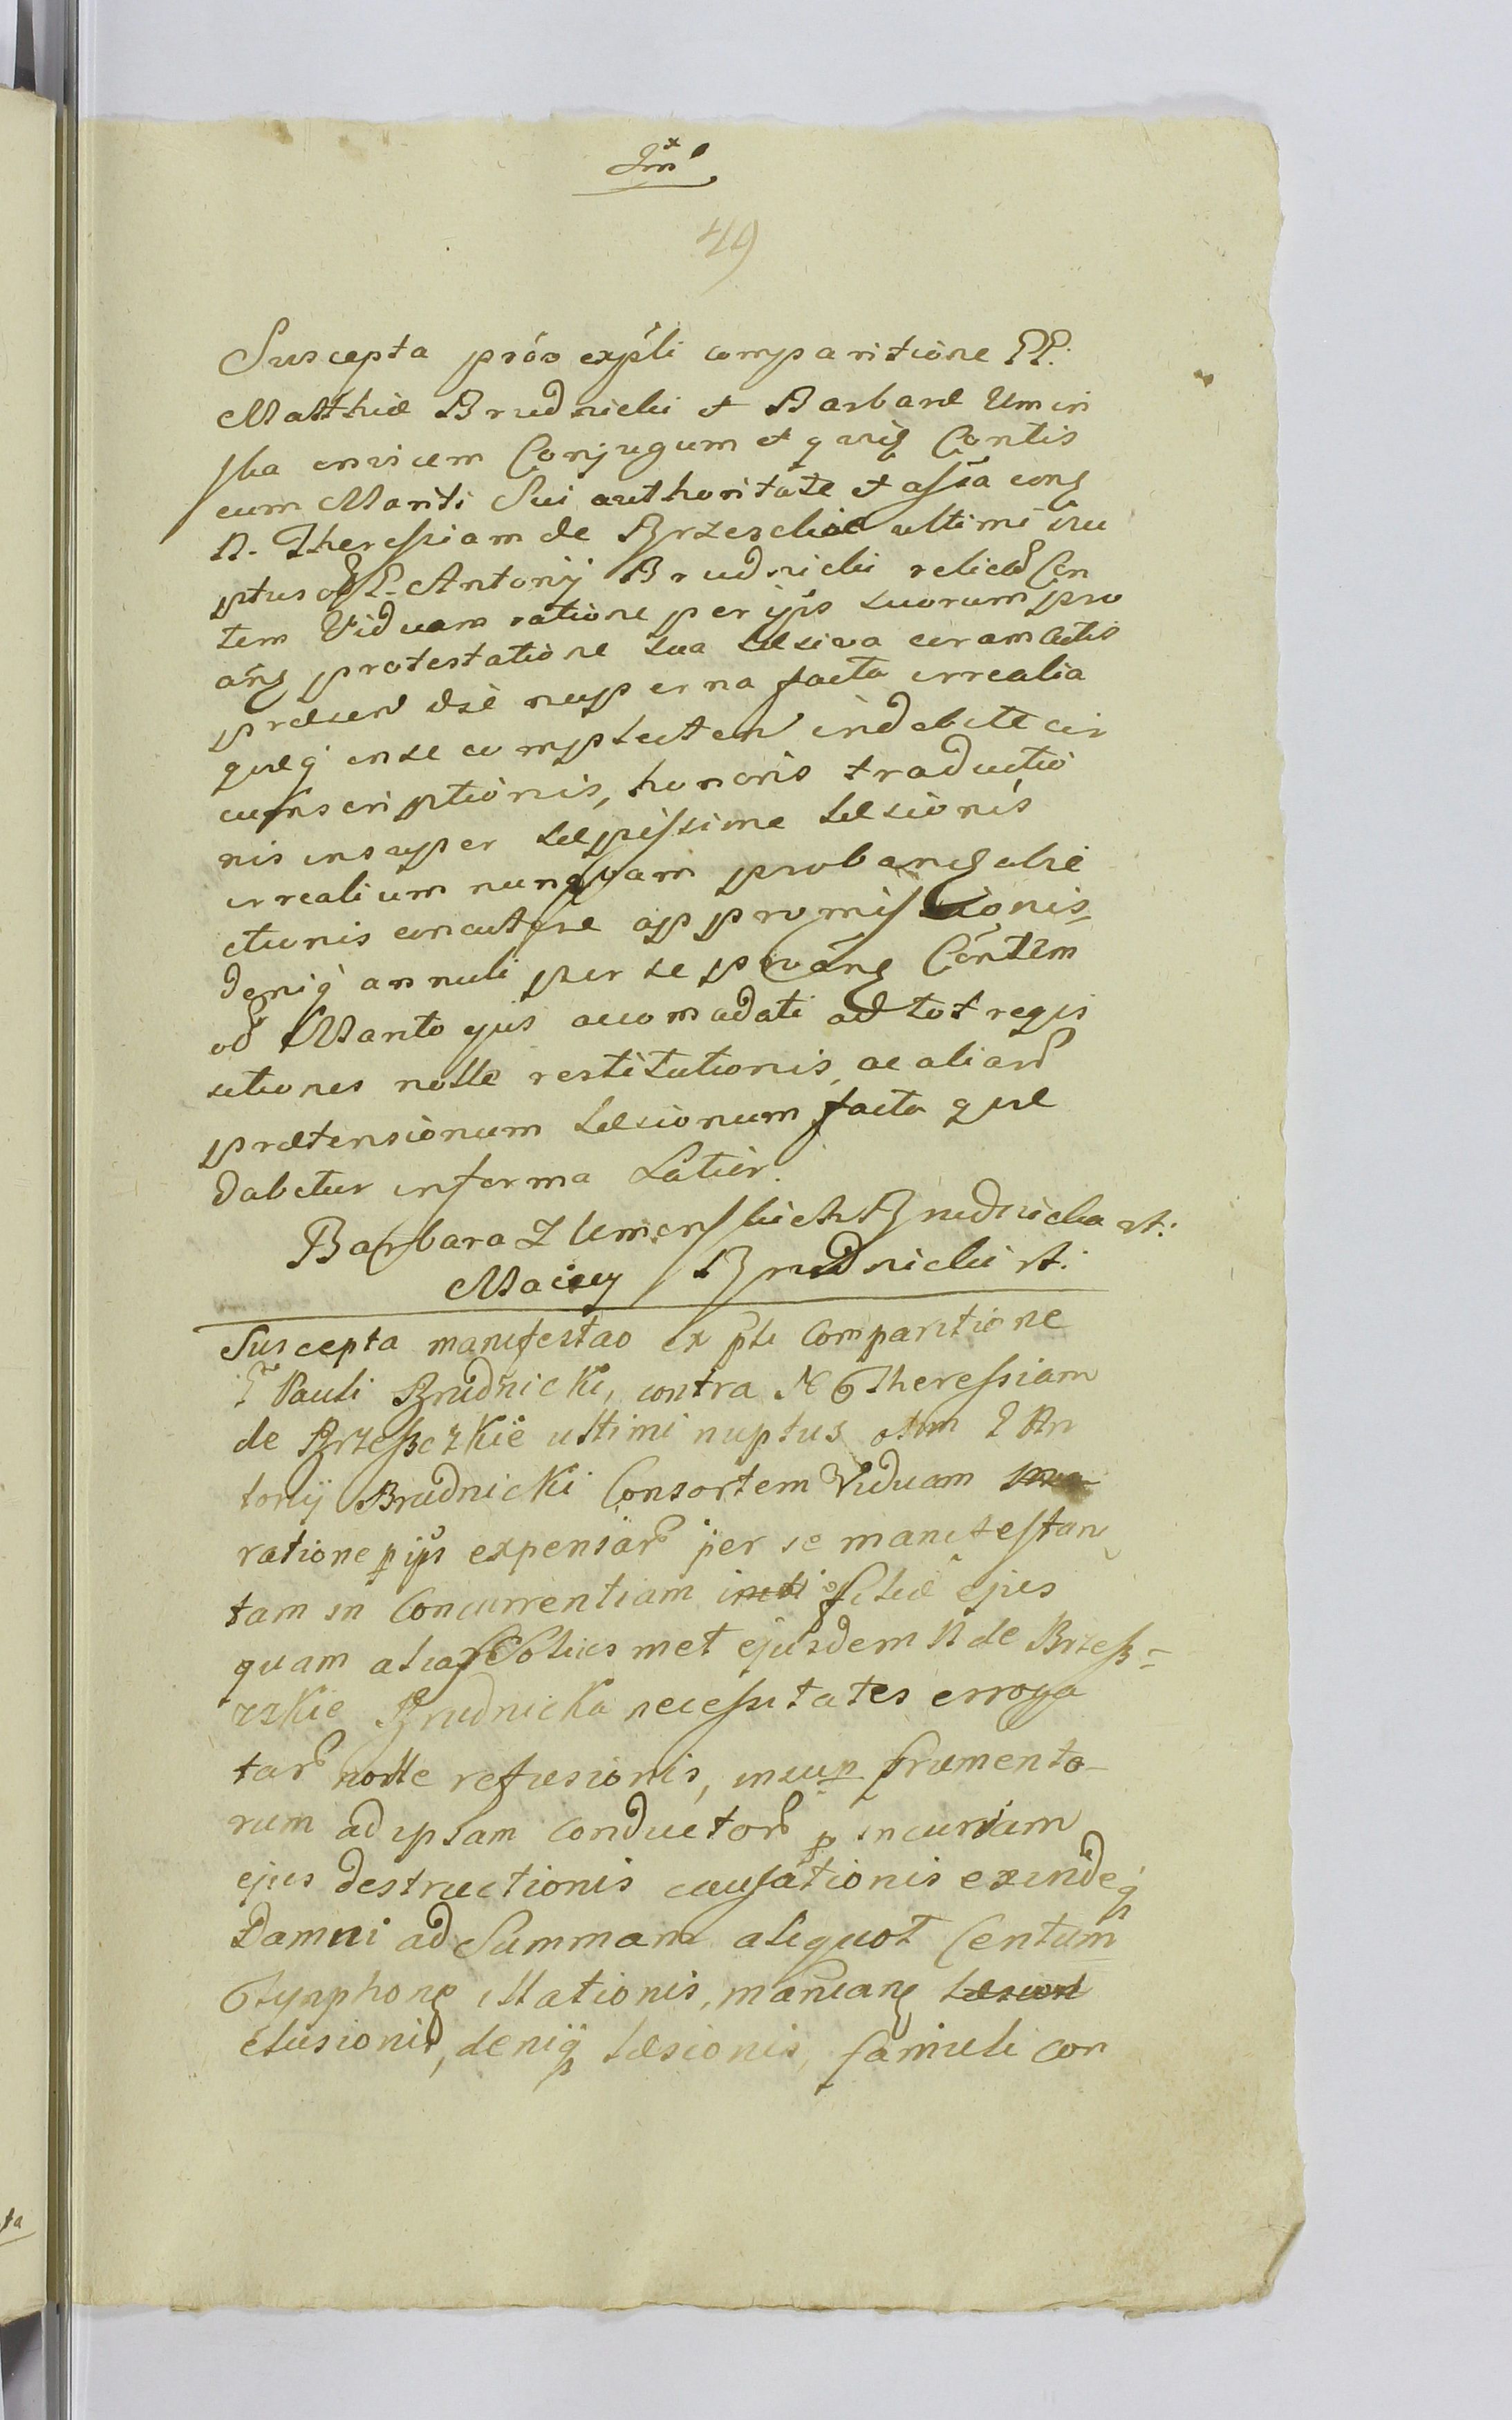 49
Suscepta prõo expťli comparitione PP.
Matthiæ Brudnicki et Barbaræ Umin
ska invicem Conjugum et Contis
cum Mariti Sui authoritate et assa cong
N. Theressiam de Brzeskie ultimi nu
ptus Antonij Brudnicki relictã Con
tem Viduam ratione per ipõs suorum pro
ang protestatione sua læsiva coram actis
præsen nuperna facta irrealia
quæq in se complecten indebite cir
cumscriptionis, honoris traductio
nis insuper sæpissime læsionis
irrealium nunquam probang
ctionis appromissionis
deniq annuli per se prõang Contem
Marito ejus accomodati ad tot requi
sitiones nolle restitutionis, ac aliarũ
prætensionum læsionum facta quæ
dabitur in forma Latiõr.
Barbara Z Uminskich Brudnicka
Maciey Brudnicki
Suscepta manifestao ex põli Comparitione
Pauli Brudnicki, contra N Theressiam
de Brzeßczkie ultimi nuptus olim An
tonij Brudnicki Consortem Viduam
ratione p ipõs expensarũ per se manifestan
tam in Concurrentiam filiæ ejus
quam alias Solius met ejusdem N de Brzeß=
czkie Brudnicka necessitates erroga
tarũ nolle refusionis, insup frumento-
rum ad ipsam conductorũ p incuriam
ejus destructionis causationis exindeq
Damni ad Summam aliquot Centum
Tynphong illationis, mañeang
elusionis, deniq læsionis, famuli con